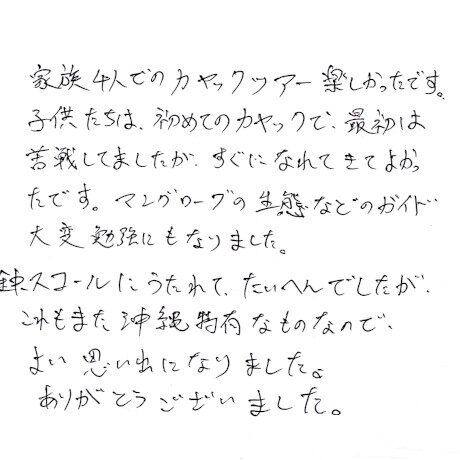 家族4人でのカヤックツアー楽しかったです。
子供たちは、初めてのカヤックで、最初は
苦戦してましたが、すぐになれてきてよかっ
たです。マングローブの生態などのガイド
大変勉強にもなりました。
スコールにうたれて、たいへんでしたが、
これもまた沖縄特有なものなので、
よい思い出になりました。
ありがとうございました。